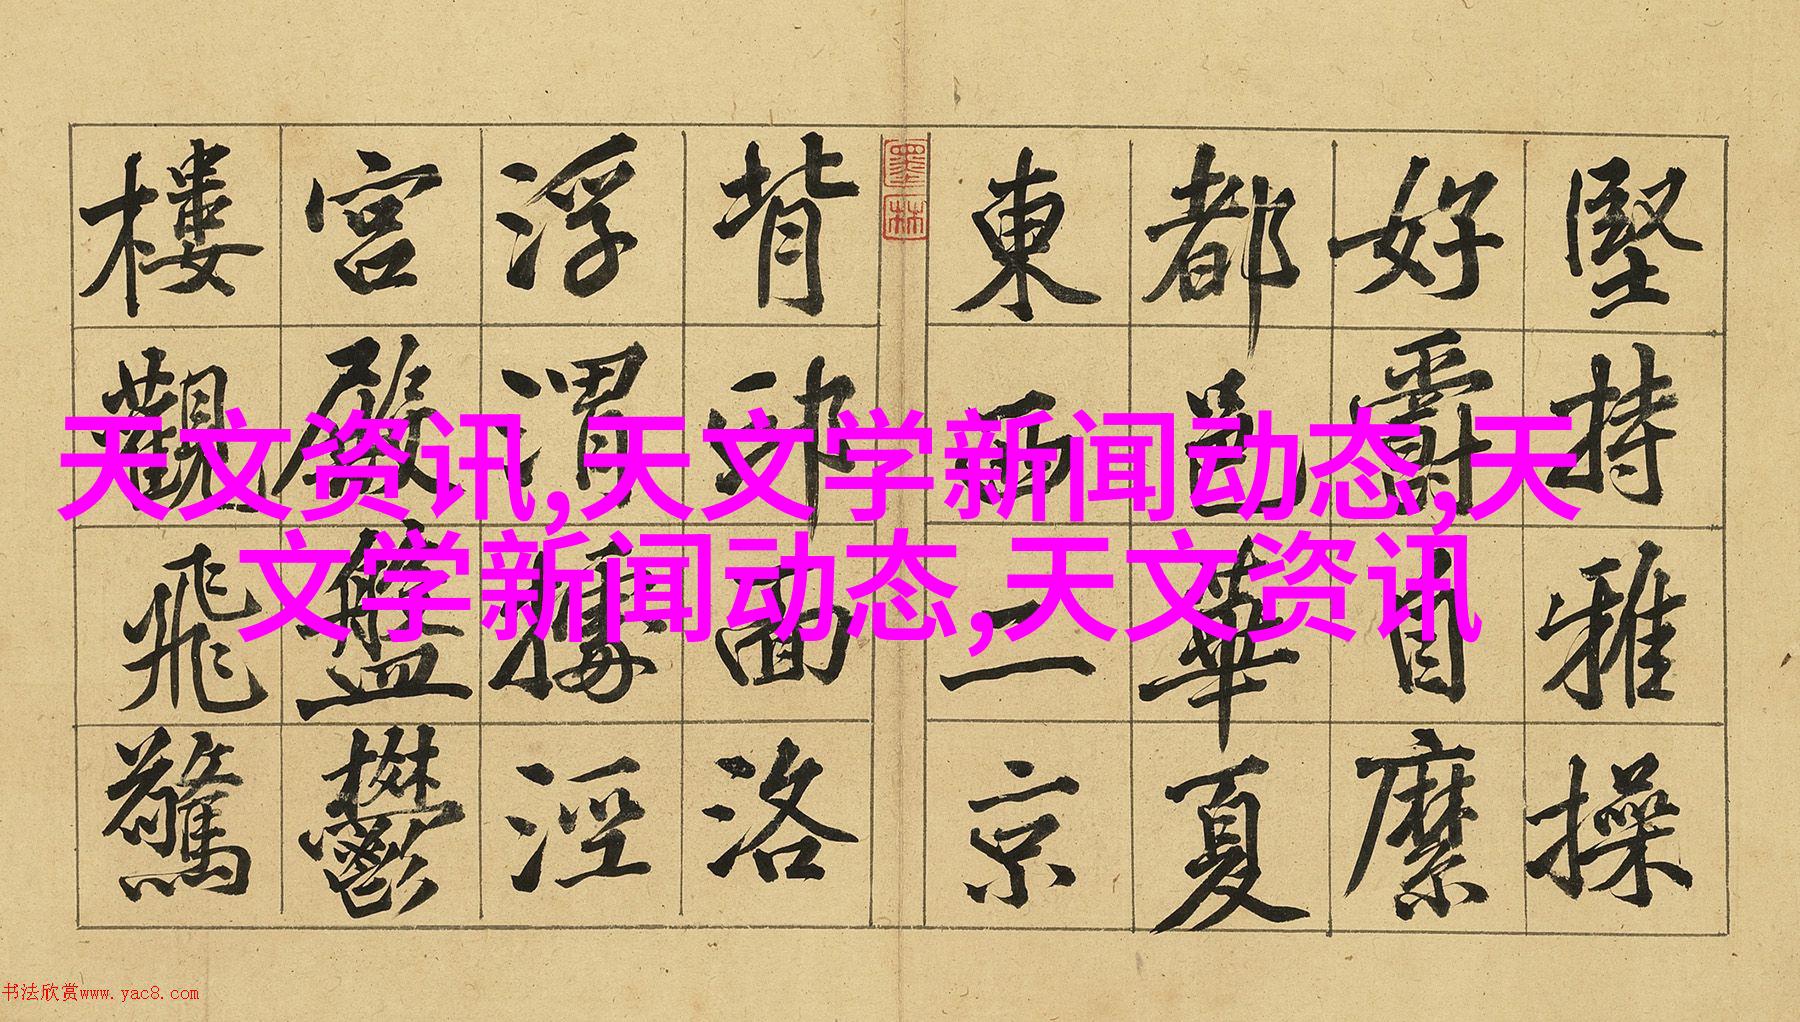 堅持雅操
好爵自縻
都邑華夏
東西二京
背邙面洛
浮渭據涇
宮殿盤鬱
樓觀飛驚
墨林
天文资讯,天文学新闻动态,天
文学新闻动态,天文资讯
书法欣赏www.yac8.com